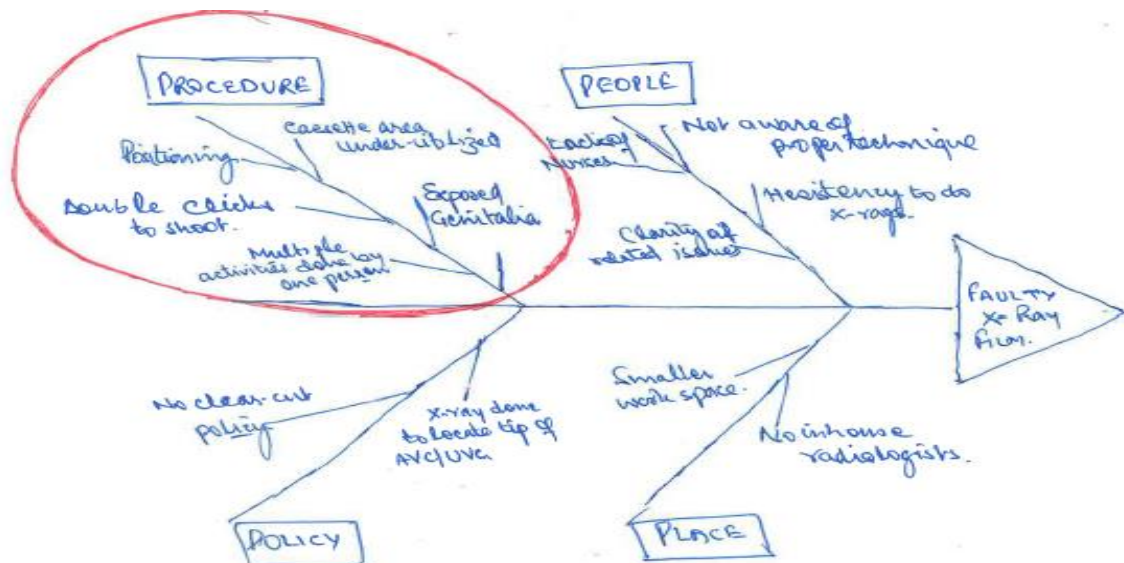 PROCEDURE
Cassette area
under-utilized
Positioning
Double clicks
to shoot.
Exposed
Genitalia
Multiple
activities done by
one person
PEOPLE
Lack of
Nurses
Not aware of
proper technique
Hesistency to do
x-rays.
Clarity of
related issues
FAULTY
X-Ray
Film.
No clear-cut
policy
X-ray done
to locate tip of
POLICY
Smaller
work space.
No inhouse
radiologists.
PLACE